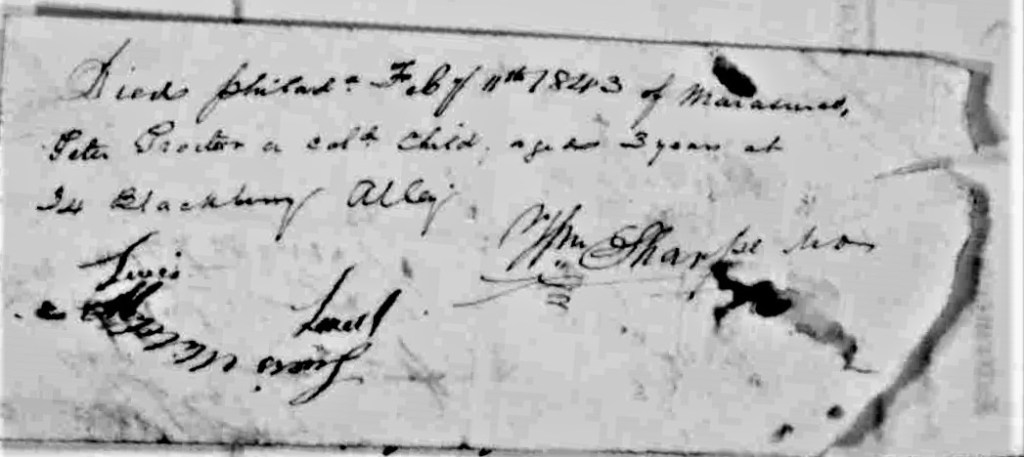 Died Philada Feby 11th 1843 of Marasmus,
Peter Procter a cold child, aged 3 years at
34 Blackberry Alley
Wm Sharpe MD
Lewis